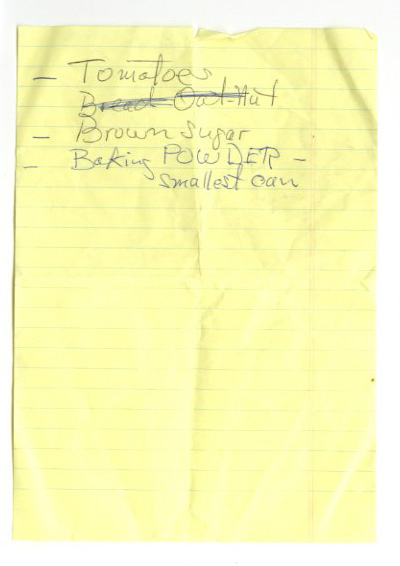 - Tomatoes
Bread Oat-Nut
- Brown Sugar
- Baking POWDER -
smallest can